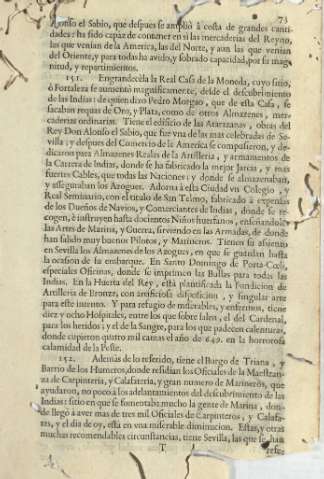 73
Alonso el Sabio, que despues se amplió à costa de grandes canti-
dades: ha sido capaz de contener en si las mercaderias del Reyno,
las que venian de la America, las del Norte, y aun las que venian
del Oriente, y para todas ha avido, y sobrado capacidad, por su mag-
nitud, y repartimientos.
151. Engrandecela la Real Casa de la Moneda, cuyo sitio,
ò Fortaleza se aumentò magnificamente, desde el descubrimiento
de las Indias: de quien dixo Pedro Morgao, que de esta Casa, se
sacaban requas de Oro, y Plata, como de otros Almazenes, mer-
caderias ordinarias. Tiene el edificio de las Atarazanas, obras del
Rey Don Alonso el Sabio, que fue vna de las mas celebradas de Se-
villa; y despues del Comercio de la America se compusieron, y de-
dicaron para Almazenes Reales de la Artilleria, y armamentos de
la Carrera de Indias, donde se ha fabricado la mejor Jarcia, y mas
fuertes Cables, que todas las Naciones; y donde se almazenaban,
y asseguraban los Azogues. Adorna à esta Ciudad vn Colegio, y
Real Seminario, con el titulo de San Telmo, fabricado à expensas
de los Dueños de Navios, y Comerciantes de Indias, donde se re-
cogen, è instruyen hasta docientos Niños huerfanos, enseñandoles
las Artes de Marina, y Guerra, sirviendo en las Armadas, de donde
han salido muy buenos Pilotos, y Marineros. Tienen su assiento
en Sevilla los Almazenes de los Azogues, en que se guardan hasta
la ocasion de su embarque. En Santo Domingo de Porta-Cœli,
especiales Oficinas, donde se imprimen las Bullas para todas las
Indias. En la Huerta del Rey, està plantificada la Fundicion de
Artilleria de Bronze, con artificiosa disposicion, y singular arte
para este intento. Y para refugio de miserables, y enfermos, tiene
diez y ocho Hospitales, entre los que sobresalen, el del Cardenal,
para los heridos; y el de la Sangre, para los que padecen calenturas,
donde cupieron quatro mil camas el año de 649. en la horrorosa
calamidad de la Peste.
152. Ademàs de lo referido, tiene el Burgo de Triana, y
Barrio de los Humeros, donde residian los Oficiales de la Maestran-
za de Carpinteria, y Calafateria, y gran numero de Marineros, que
ayudaron, no poco à los adelantamientos del descubrimiento de las
Indias: sitio en que se fomentaba mucho la gente de Marina, don-
de llegò à aver mas de tres mil Oficiales de Carpinteros, y Calafa-
tes, y el dia de oy, està en vna miserable diminucion. Estas, y otras
muchas recomendables circunstancias, tiene Sevilla, las que se han
T